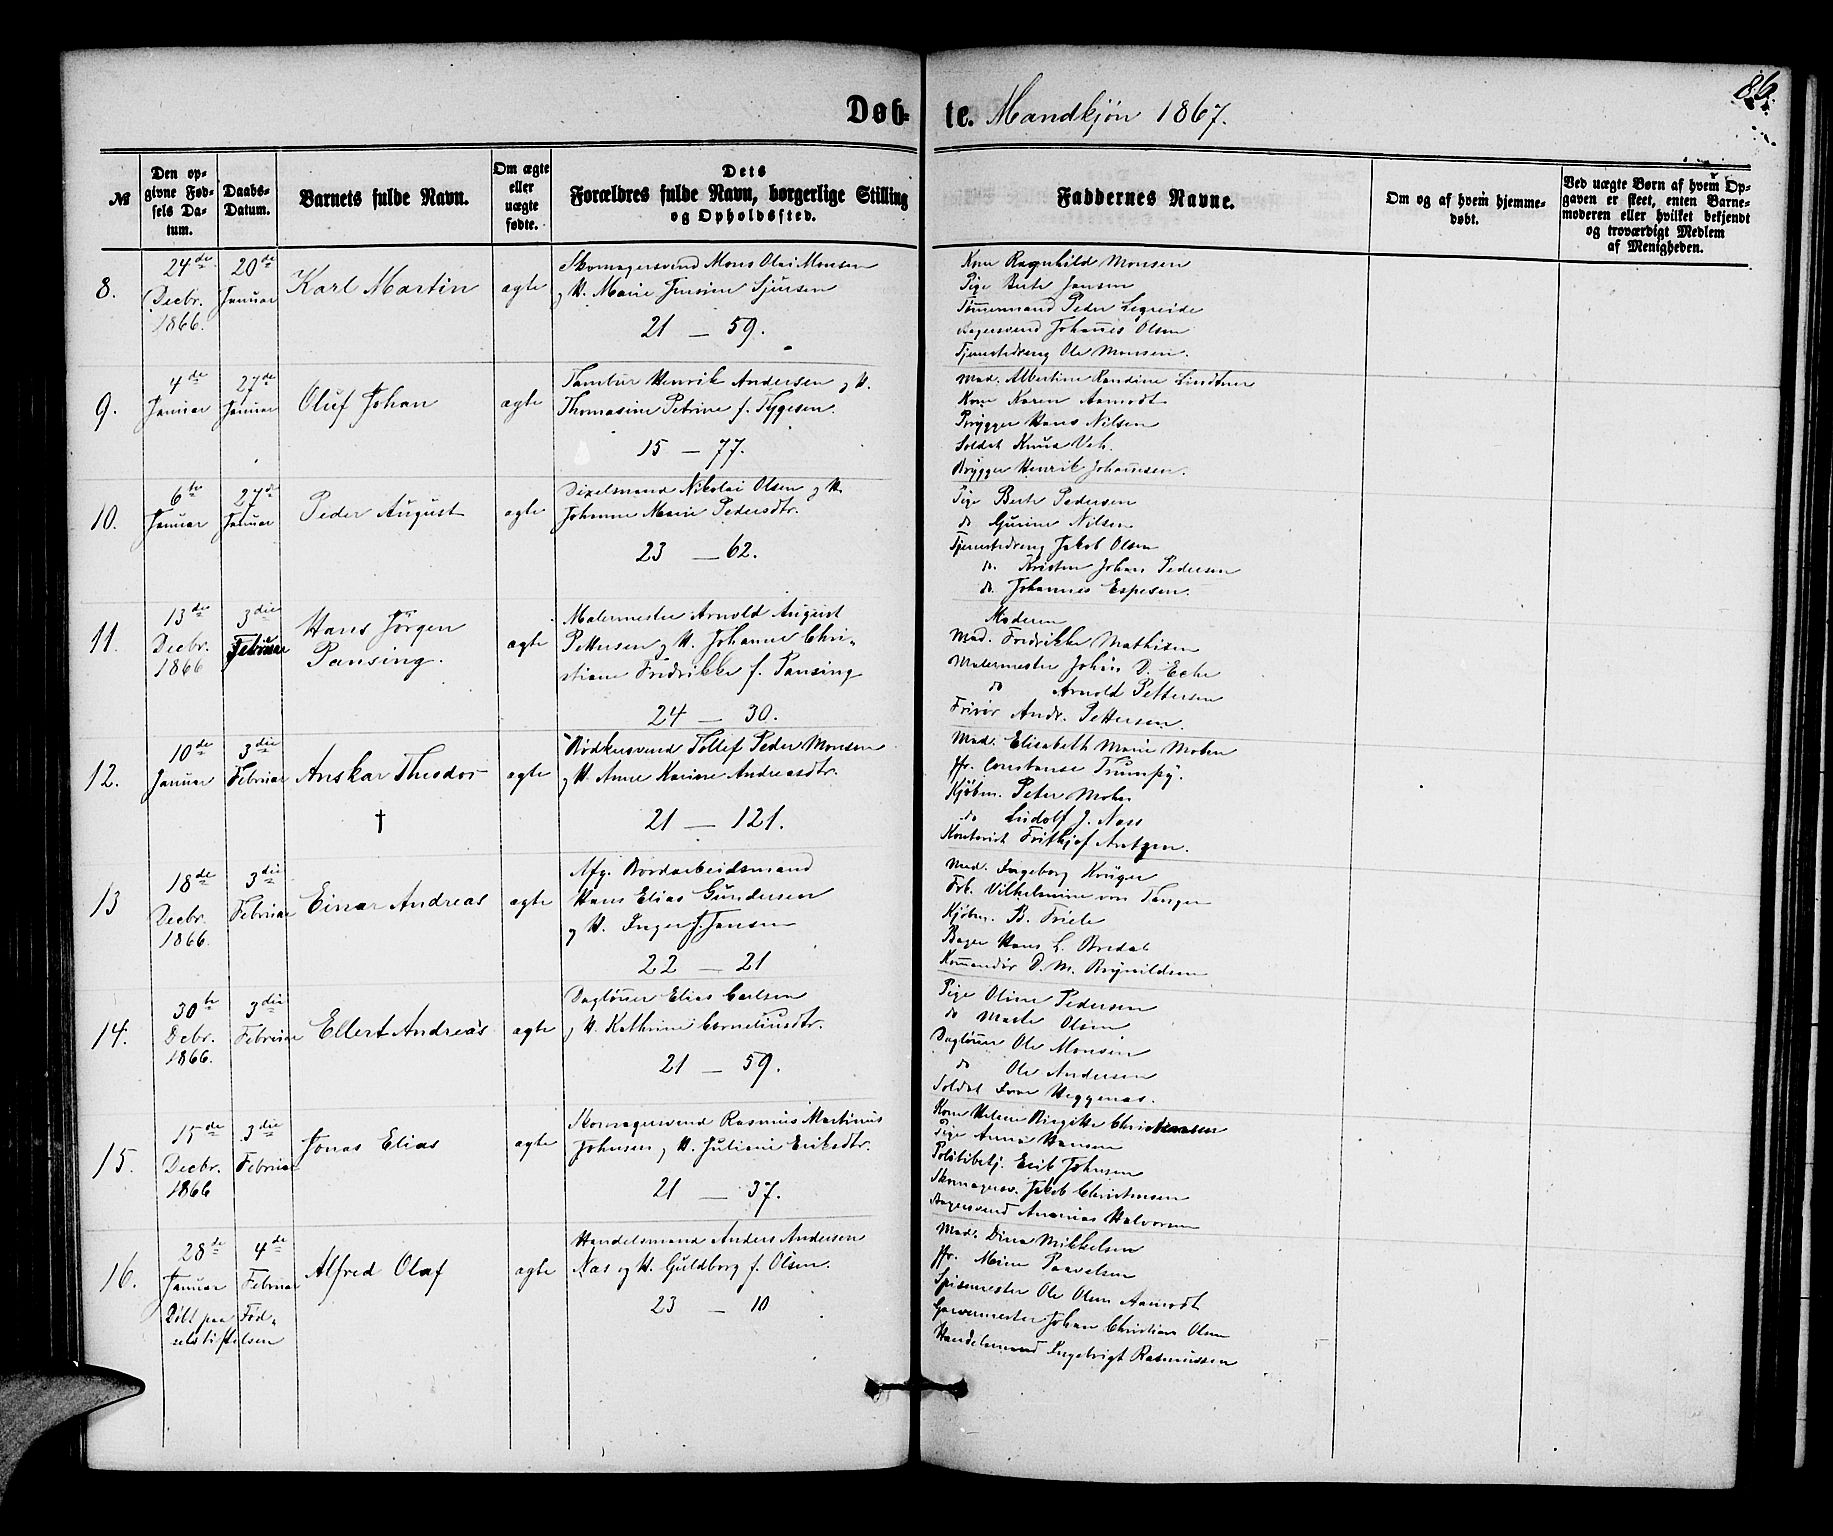 86.
Døb- te. Mandkjøn 1867.
№
Den opgivne Fødsels Datum.
Daabs-Datum.
Barnets fulde Navn.
Om ægte eller uægte fødte.
Dets Forældres fulde Navn, borgerlige Stilling og Opholdssted.
Faddernes Navne.
Om og af hvem hjemmedøbt.
Ved uægte Børn af hvem Opgaven er skeet, enten Barnemoderen eller hvilket bekjendt og troværdigt Medlem af Menigheden.
8.
24de Decbr. 1866.
20de Januar
Karl Martin
ægte
Skomagersvend Mons Olai Monsen
og H. Marie Jensine Sjursen
21 — 59.
Kone Ragnhild Monsen
Pige Berte Jansen
Tømermand Peder Legreide
Bagersvend Johanes Olsen
Tjenestedreng Ole Monsen.
9.
4de Januar
27de Januar
Oluf Johan
ægte
Tambur Henrik Andersen og H.
Thomasine Petrine f. Tygesen.
15 — 77.
Mad. Albertine Randine Lindtner
Kone Karen Aamodt
Brygger Hans Nilsen
Soldat Knud
Brygger Henrik Johannesen.
10.
6te Januar
27de Januar
Peder August
ægte
Nikolai Olsen og H.
Johanne Marie Pedersdtr.
23 — 62.
Pige Berte Pedersen
do Gurine Nilsen
Tjenestedreng Jakob Olsen
do. Kristen Johan Pedersen
do. Johannes Espesen.
11.
13de Decbr. 1866
3die Februar
Hans Jörgen
Pansing.
ægte
Malermester Arnold August
Pettersen og H. Johanne Chri-
stiane Fredrikke f. Pansing
24 — 30.
Moderen
Mad. Fredrikke Mathisen
Malermester Johan D. Eche
do Arnold Pettersen
Frisør Andr. Pettersen.
12.
10de Januar
3die Februar
Anskar Theodor
†
ægte
Bødkersvend Tollef Peder Monsen
og H. Anne Karine Andreasdtr.
21 — 121.
Mad. Elisabeth Marie Mohn
Jfr. Constanse Trumpy.
Kjøbm. Peter Mohn
do Ludolf J. Nass
Kontorist Frithjof Antzen.
13
18de Decbr. 1866.
3die Februar
Einar Andreas
ægte
Afg. Bordarbeidsmand
Hans Elias Gundersen
og H. Inger J. Jansen
22 — 21
Mad. Ingeborg Krüger
Frk. Vilhelmine von Tangen
Kjøbm. B. Friele
Bager Hans L. Bredal
Komandör D. M. Brynildsen
14.
30te Decbr. 1866.
3die Februar
Ellert Andreas
ægte
Dagløner Elias Carlsen
og H. Kathrine Corneliusdtr.
21 — 59.
Pige Oline Pedersen
do Marte Olsen
Dagløner Ole Monsen
do Ole Andersen
Soldat Iver Heggenas.
15.
15de Decbr. 1866
3die Februar
Jonas Elias
ægte
Skomagersvend Rasmus Martinus
Johnsen og H. Juliane Eriksdtr.
21 — 37.
Kone Helene Birgitte Christensen
Pige Anna Hansen
Politibetj. Erik Johnsen
Skomagersv. Jakob Christensen
Bagersvend Ananias Halvorsen
16.
28de Januar
4de Februar
Döbt paa Fød-
selsstiftelsen
Alfred Olaf
ægte
Handelsmand Anders Andersen
Nas og H. Guldborg f. Olsen.
23 — 10
Mad. Dina Mikkelsen
Jfr. Mine Paavelsen
Spisemester Ole Olsen Aamodt
Garvermester Johan Christian Olsen
Handelsmand Ingebrigt Rasmussen